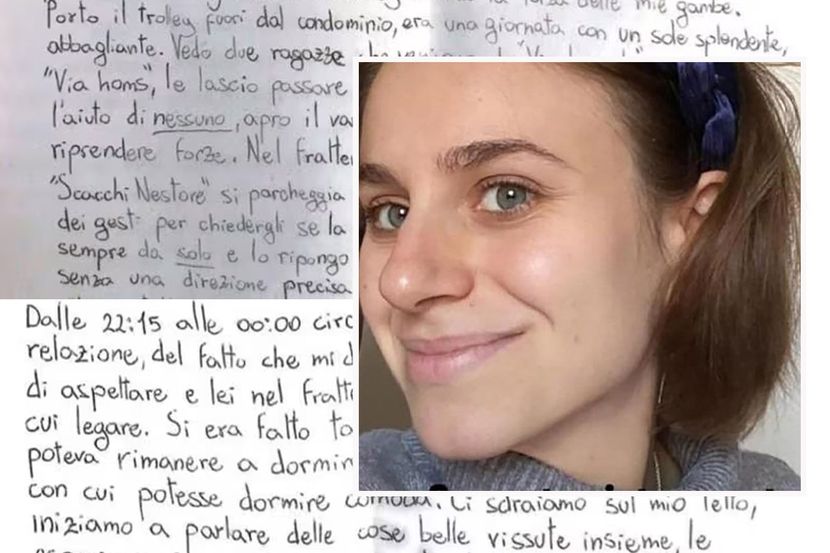 mie gambe.
Porto il trolley fuori dal condominio, era una giornata con un sole splendente,
abbagliante. Vedo due ragazze
"Via homs", le lascio passare
l'aiuto di nessuno, apro il va
riprendere forze. Nel fratte
"Scacchi Nestore" si parcheggia
dei gesti per chiedergli se la
sempre da solo e lo ripongo
senza una direzione precisa
Dalle 22:15 alle 00:00 circ
relazione, del fatto che mi d
di aspettare e lei nel fratt
cui legare. Si era fatto ta
poteva rimanere a dormir
con cui potesse dormire comoda. Ci sdraiamo sul mio letto,
iniziamo a parlare delle cose belle vissute insieme, le